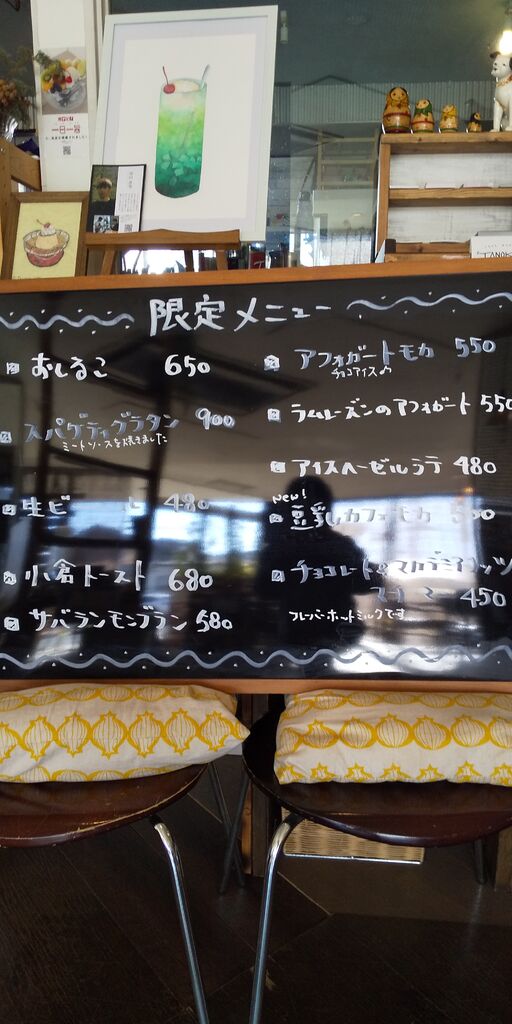 一日一旨
TANDE
限定メニュー
おしるこ 650
スパゲティグラタン 900
ミートソースを焼きました
生ビール 480
小倉トースト 680
サバランモンブラン 580
アフォガートモカ 550
チョコアイス♪
ラムレーズンのアフォガート 550
アイスヘーゼルラテ 480
New!
豆乳カフェモカ 500
チョコレート&マカデミアナッツ
スチーマー 450
フレーバーホットミルクです